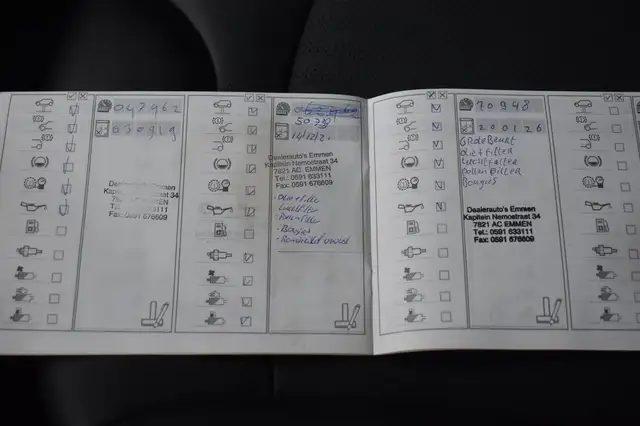 047962
030919
Dealerauto's Emmen
Kapitein Nemostraat 34
7821 AC EMMEN
Fax: 0591 676609
14/12/2
Dealerauto's Emmen
Kapitein Nemostraat 34
7821 AC EMMEN
Tel.: 0591 633111
Fax: 0591 676609
Luchtfilter
- Bougies
70948
200126
Grote Beurt
oliefilter
Luchtfilter
pollen Filter
Bougies
Dealerauto's Emmen
Kapitein Nemostraat 34
7821 AC EMMEN
Tel.: 0591 633111
Fax: 0591 676609